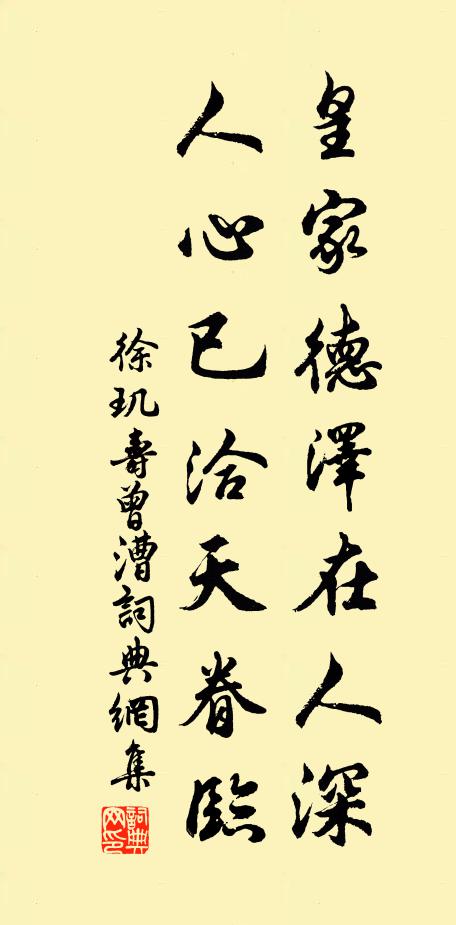 皇家德澤在人深
人心已洽天眷臨
徐璣壽曾漕詞典網集
詞典網印